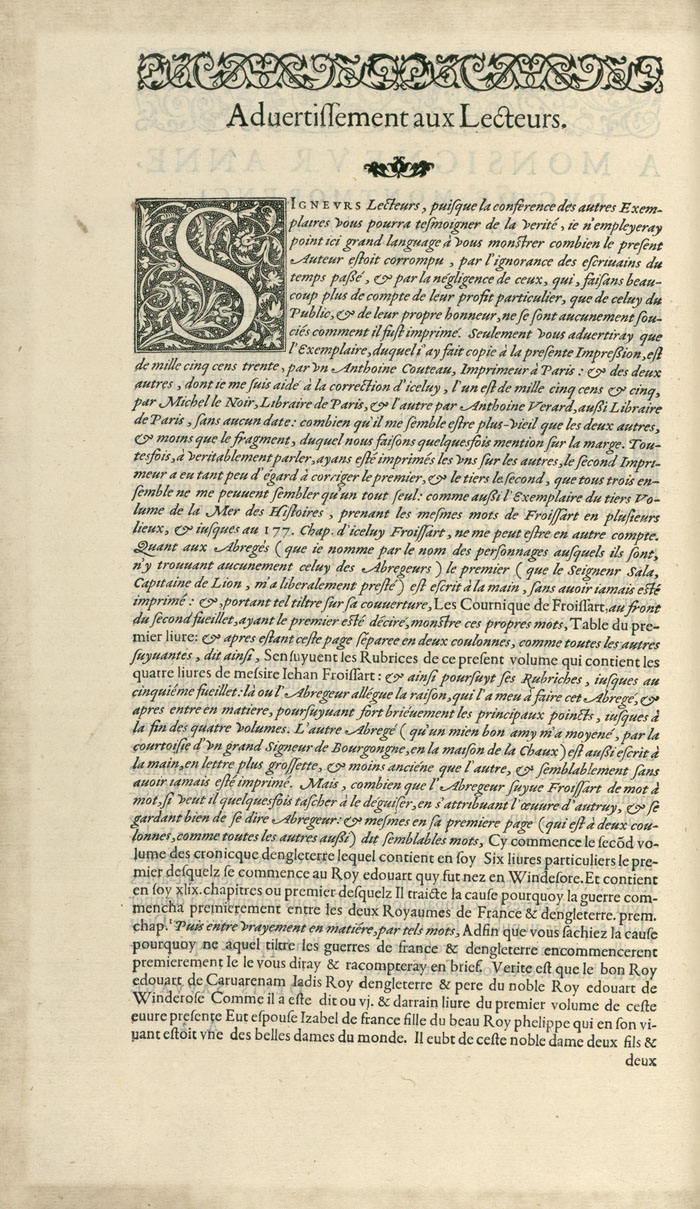 Aduertiſſement aux Lecteurs.
SIGNEVRS Lecteurs, puiſque la conference des autres Exem-
plaires vous pourra teſmoigner de la verité, ie n'empleyeray
point ici grand language à vous monſtrer combien le preſent
Auteur eſtoit corrompu, par l'ignorance des eſcriuains du
temps paßé, & par la négligence de ceux, qui, faiſans beau-
coup plus de compte de leur profit particulier, que de celuy du
Public, & de leur propre honneur, ne ſe ſont aucunement ſou-
ciés comment il fuſt imprimé. Seulement vous aduertiray que
l'Exemplaire, duquel i'ay fait copie à la preſente Impreſſion, eſt
de mille cinq cens trente, par vn Anthoine Couteau, Imprimeur à Paris: & des deux
autres, dont ie me ſuis aidé à la correction d'iceluy, l'un eſt de mille cinq cens & cinq,
par Michel le Noir, Libraire de Paris, & l'autre par Anthoine Verard, außi Libraire
de Paris, ſans aucun date: combien qu'il me ſemble eſtre plus-vieil que les deux autres,
& moins que le fragment, duquel nous faiſons quelquesfois mention ſur la marge. Tou-
tesfois, à veritablement parler, ayans eſté imprimés les vns ſur les autres, le ſecond Impri-
meur a eu tant peu d'égard à corriger le premier, & le tiers le ſecond, que tous trois en-
ſemble ne me peuuent ſembler qu'un tout ſeul: comme außi l'Exemplaire du tiers Vo-
lume de la Mer des Hiſtoires, prenant les meſmes mots de Froiſſart en pluſieurs
lieux, & iuſques au 177. Chap. d'iceluy Froiſſart, ne me peut eſtre en autre compte.
Quant aux Abregés (que ie nomme par le nom des perſonnages auſquels ils ſont,
n'y trouuant aucunement celuy des Abregeurs) le premier (que le Seigneur Sala,
Capitaine de Lion, m'a liberalement preſté) eſt eſcrit à la main, ſans auoir iamais eſté
imprimé: &, portant tel tiltre ſur ſa couuerture, Les Cournique de Froiſſart, au front
du ſecond fueillet, ayant le premier eſté déciré, monſtre ces propres mots, Table du pre-
mier liure: & apres eſtant ceſte page ſéparee en deux coulonnes, comme toutes les autres
ſuyuantes, dit ainſi, Senſuyuent les Rubrices de ce preſent volume qui contient les
quatre liures de meſsire Iehan Froiſſart: & ainſi pourſuyt ſes Rubriches, iuſques au
cinquiéme fueillet: là ou l'Abregeur allégue la raiſon, qui l'a meu à faire cet Abregé, &
apres entre en matiere, pourſuyuant fort briéuement les principaux poincts, iuſques à
la fin des quatre volumes. L'autre Abregé (qu'un mien bon amy m'a moyené, par la
courtoiſie d'vn grand Signeur de Bourgongne, en la maiſon de la Chaux) eſt außi eſcrit à
la main, en lettre plus groſſette, & moins anciéne que l'autre, & ſemblablement ſans
auoir iamais eſté imprimé. Mais, combien que l'Abregeur ſuyue Froiſſart de mot à
mot, ſi veut il quelquesfois taſcher à le déguiſer, en s'attribuant l'œuure d'autruy, & ſe
gardant bien de ſe dire Abregeur: & meſmes en ſa premiere page (qui eſt à deux cou-
lonnes, comme toutes les autres außi) dit ſemblables mots, Cy commence le ſecõd vo-
lume des cronicque dengleterre lequel contient en ſoy Six liures particuliers le pre-
mier deſquelz ſe commence au Roy edouart quy fut nez en Windeſore. Et contient
en ſoy xlix. chapitres ou premier deſquelz Il traicte la cauſe pourquoy la guerre com-
mencha premierement entre les deux Royaumes de France & dengleterre. prem.
chap. Puis entre vrayement en matiére, par tels mots, Adfin que vous ſachiez la cauſe
pourquoy ne aquel tiltre les guerres de france & dengleterre encommencerent
premierement Ie le vous diray & racompteray en brief. Verite eſt que le bon Roy
edouart de Caruarenam Iadis Roy dengleterre & pere du noble Roy edouart de
Winderoſe Comme il a eſte dit ou vj. & darrain liure du premier volume de ceſte
euure preſente Eut eſpouſe Izabel de france fille du beau Roy phelippe qui en ſon vi-
uant eſtoit vne des belles dames du monde. Il eubt de ceſte noble dame deux fils &
deux